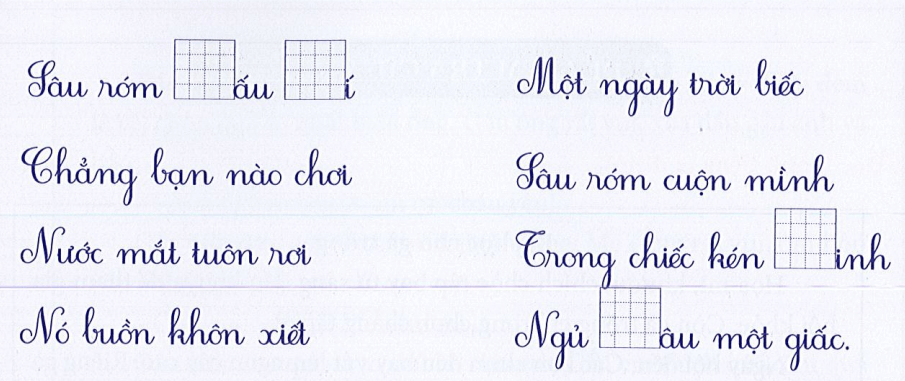 Sâu róm ấu í
Chẳng bạn nào chơi
Nước mắt tuôn rơi
Nó buồn khôn xiết
Một ngày trời biếc
Sâu róm cuộn mình
Trong chiếc kén inh
Ngủ âu một giấc.